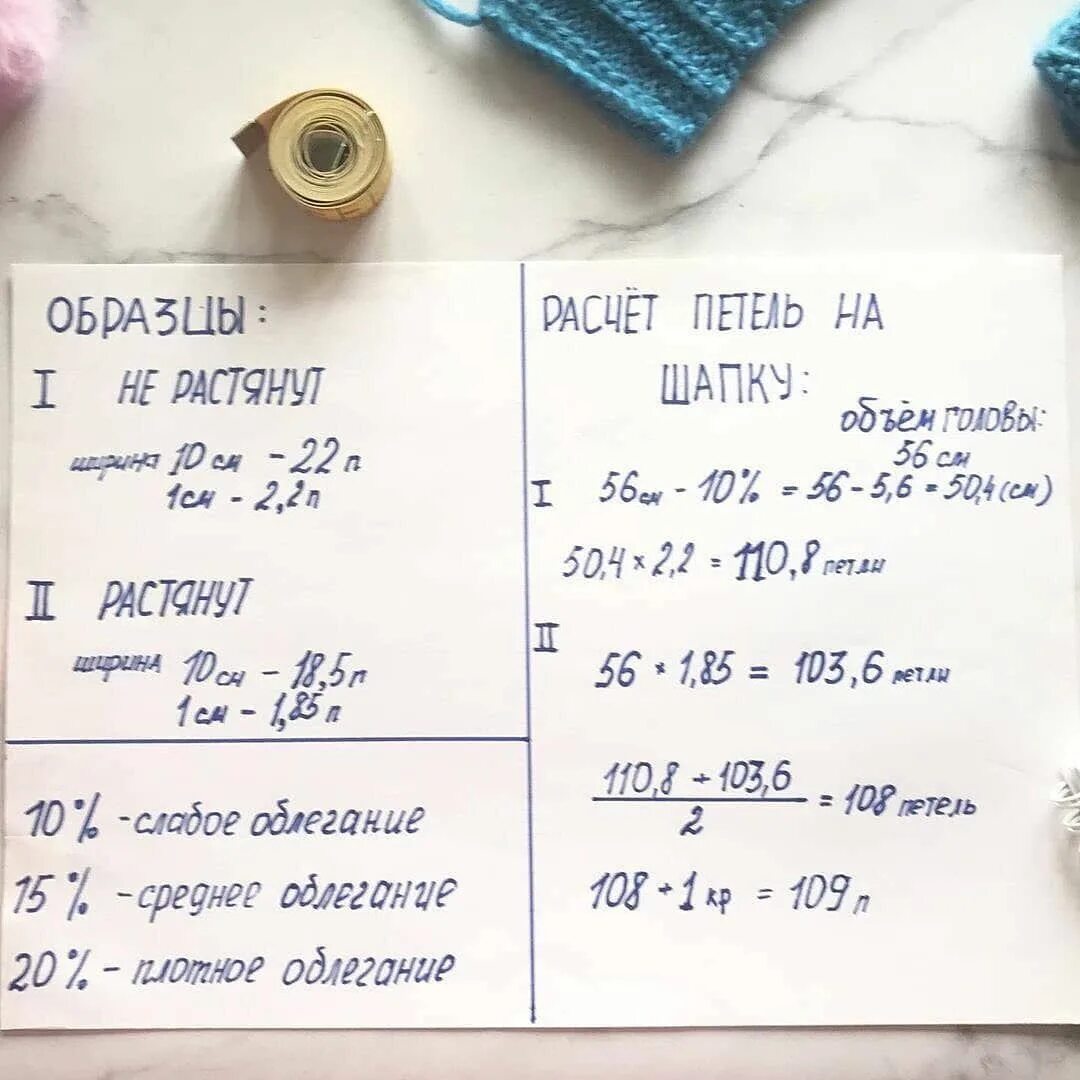 ОБРАЗЦЫ:
I НЕ РАСТЯНУТ
ширина 10 см - 22 п
1см - 2,2п
II РАСТЯНУТ
ширина 10см - 18,5п
1 см - 1,85 п
10% - слабое облегание
15% - среднее облегание
20% - плотное облегание
РАСЧЁТ ПЕТЕЛЬ НА
ШАПКУ:
объём головы:
56 см
I 56см - 10% = 56 - 5,6 = 50,4 (см)
50,4 × 2,2 = 110,8 петли
II
56 × 1,85 = 103,6 петли
110,8 + 103,6
2
= 108 петель
108 + 1 кр = 109 п